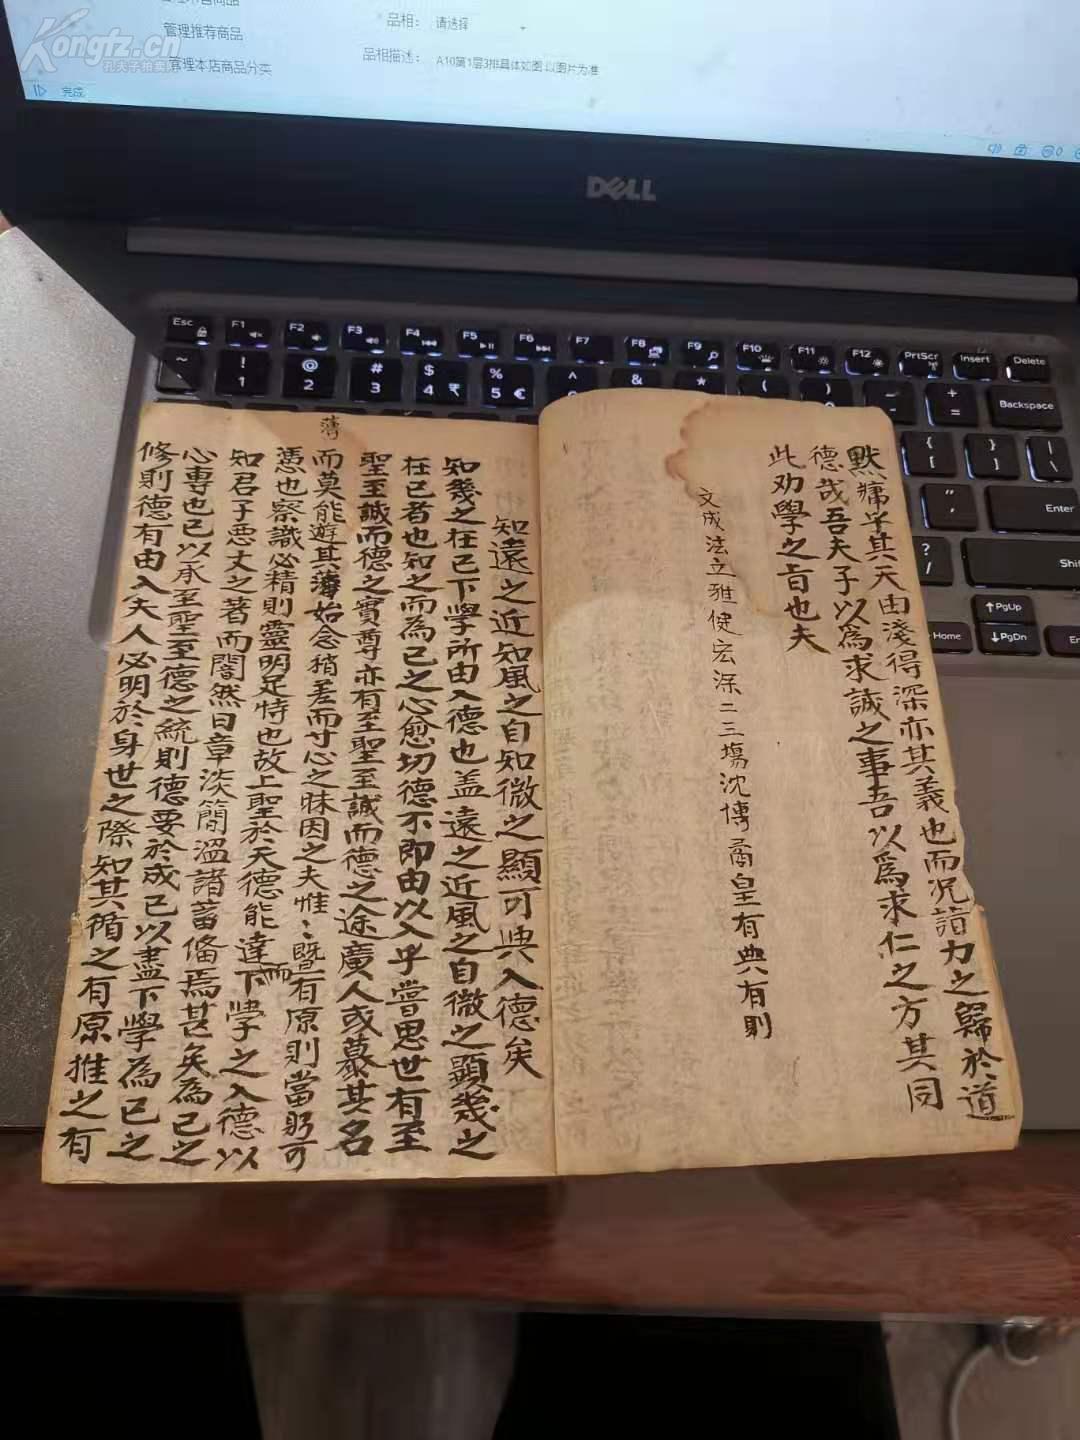 管理推荐商品
管理本店商品分类
品相: 请选择
品相描述: A10第1层3排具体如图 以图片为准
完成
Kongfz.cn
DELL
Esc F1 F2 F3 F4 F5 F6 F7 F8 F9 F10 F11 F12 PrtScr Insert Delete
~ ! 1 @ 2 # 3 $ 4 ₹ % 5 € ^ & * ( ) - + = Backspace
{ [ } ] | \
" ' Enter
? / Shif
PgUp
Home PgDn En
默痛半其天由淺得深亦其義也而况詣力之歸於道
德哉吾夫子以爲求誠之事吾以爲求仁之方其同
此劝學之旨也夫
文成法立雅健宏深二三塲沈博矞皇有典有則
知遠之近知風之自知微之顯可與入德矣
知幾之在己下學所由入德也盖遠之近風之自微之顯幾之
在己者也知之而為己之心愈切德不即由以入乎嘗思世有至
聖至誠而德之實尊亦有至聖至誠而德之途廣人或慕其名
薄
而莫能遊其薄始念稍差而寸心之昧因之夫惟〻曁有原則當躬可
憑也察識必精則靈明足恃也故上聖於天德能達而下學之入德以
知君子惡文之著而闇然日章淡簡溫諸蓄俻焉甚矣為己之
心專也己以承至聖至德之統則德要於成己以盡下學為己之
修則德有由入夫人必明於身世之際知其循之有原推之有